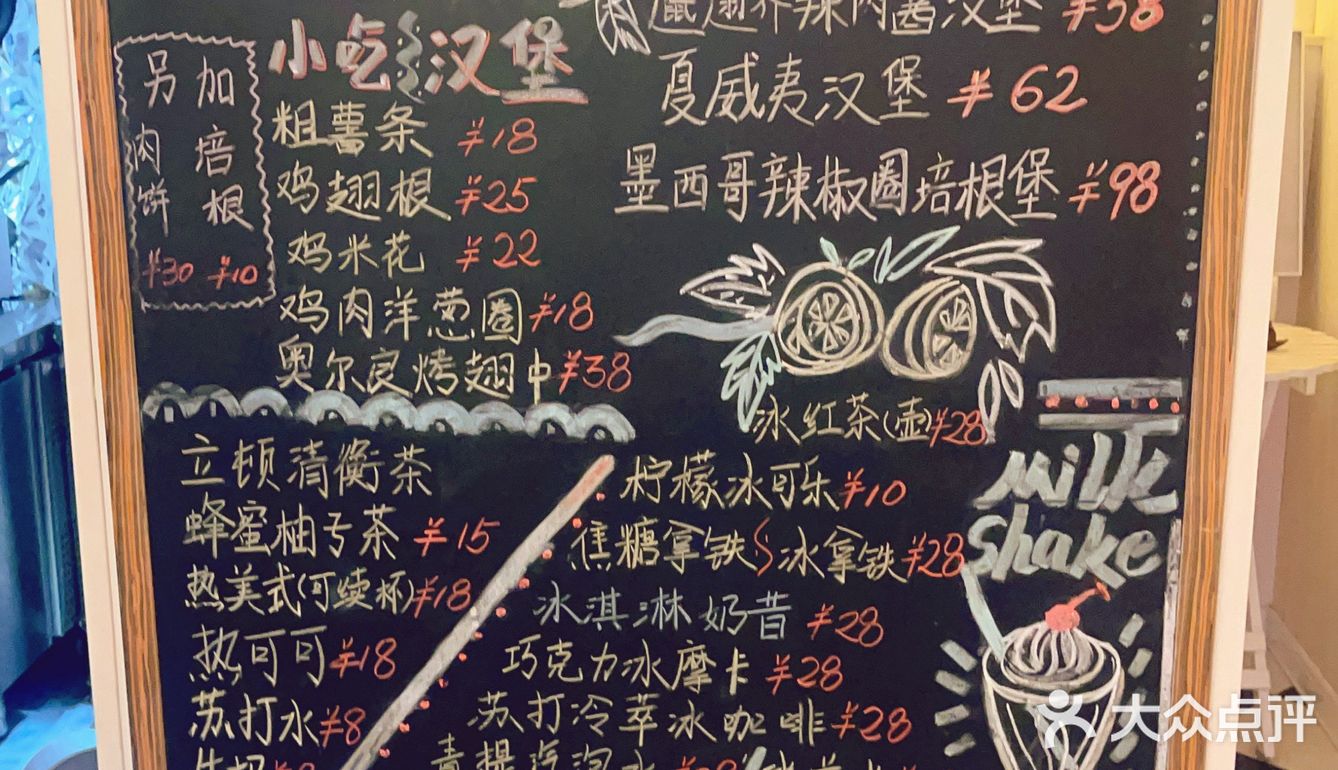 小吃 汉堡
另加
肉饼 ¥30
培根 ¥10
粗薯条 ¥18
鸡翅根 ¥25
鸡米花 ¥22
鸡肉洋葱圈 ¥18
奥尔良烤翅中 ¥38
辣肉酱汉堡 ¥38
夏威夷汉堡 ¥62
墨西哥辣椒圈培根堡 ¥98
冰红茶(壶) ¥28
立顿清衡茶
蜂蜜柚子茶 ¥15
热美式(可续杯) ¥18
热可可 ¥18
苏打水 ¥8
柠檬冰可乐 ¥10
焦糖拿铁 冰拿铁 ¥28
冰淇淋奶昔 ¥28
巧克力冰摩卡 ¥28
苏打冷萃冰咖啡 ¥28
青提汽泡水
Milk
Shake
大众点评